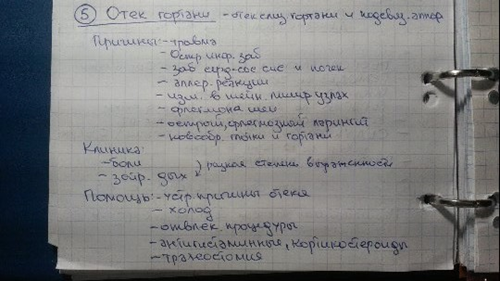 ⑤ Отек гортани - отек слиз. гортани и подслиз.
Причины: - травма
- остр. инф. заб
- заб серд-сос сис и почек
- аллер. реакции
- изм. в шейн. лимф узлах
- флегмона шеи
- острый, флегмозный ларингит
- новообр глотки и гортани
Клиника:
- боли
- затр. дых } разная степень выраженности
Помощь: - устр. причины отека
- холод
- отвлек. процедуры
- антигистаминные, кортикостероиды
- трахеостомия